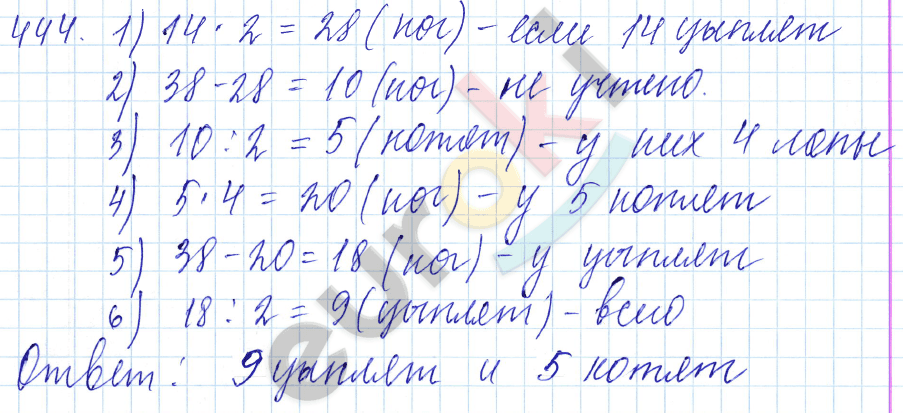 444. 1) 14 · 2 = 28 (ног) - если 14 цыплят
2) 38 - 28 = 10 (ног) - не учтено.
3) 10 : 2 = 5 (котят) - у них 4 лапы
4) 5 · 4 = 20 (ног) - у 5 котят
5) 38 - 20 = 18 (ног) - у цыплят
6) 18 : 2 = 9 (цыплят) - всего
Ответ: 9 цыплят и 5 котят
euroki